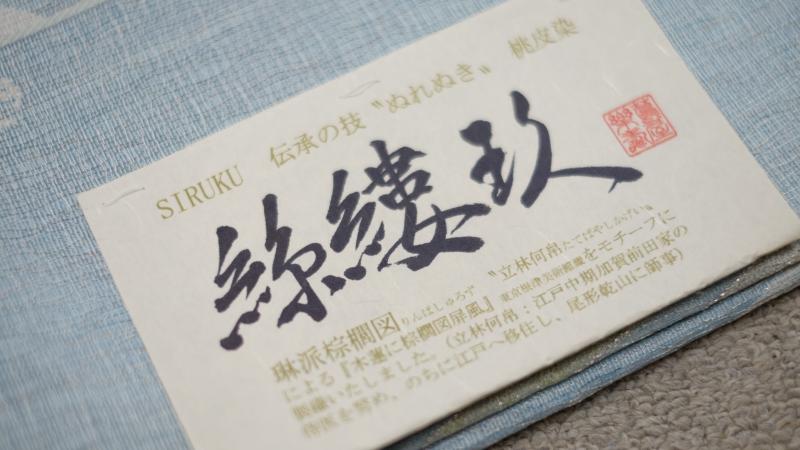 SIRUKU 伝承の技〝ぬれぬき〟 桃皮染
絲縷玖
琳派棕櫚図りんぱしゅろず 〝立林何帠たてばやしかげい
による『木蓮に棕櫚図屏風』東京根津美術館蔵をモチーフに
製織いたしました。(立林何帠:江戸中期加賀前田家の
侍医を努め、のちに江戸へ移住し、尾形乾山に師事)